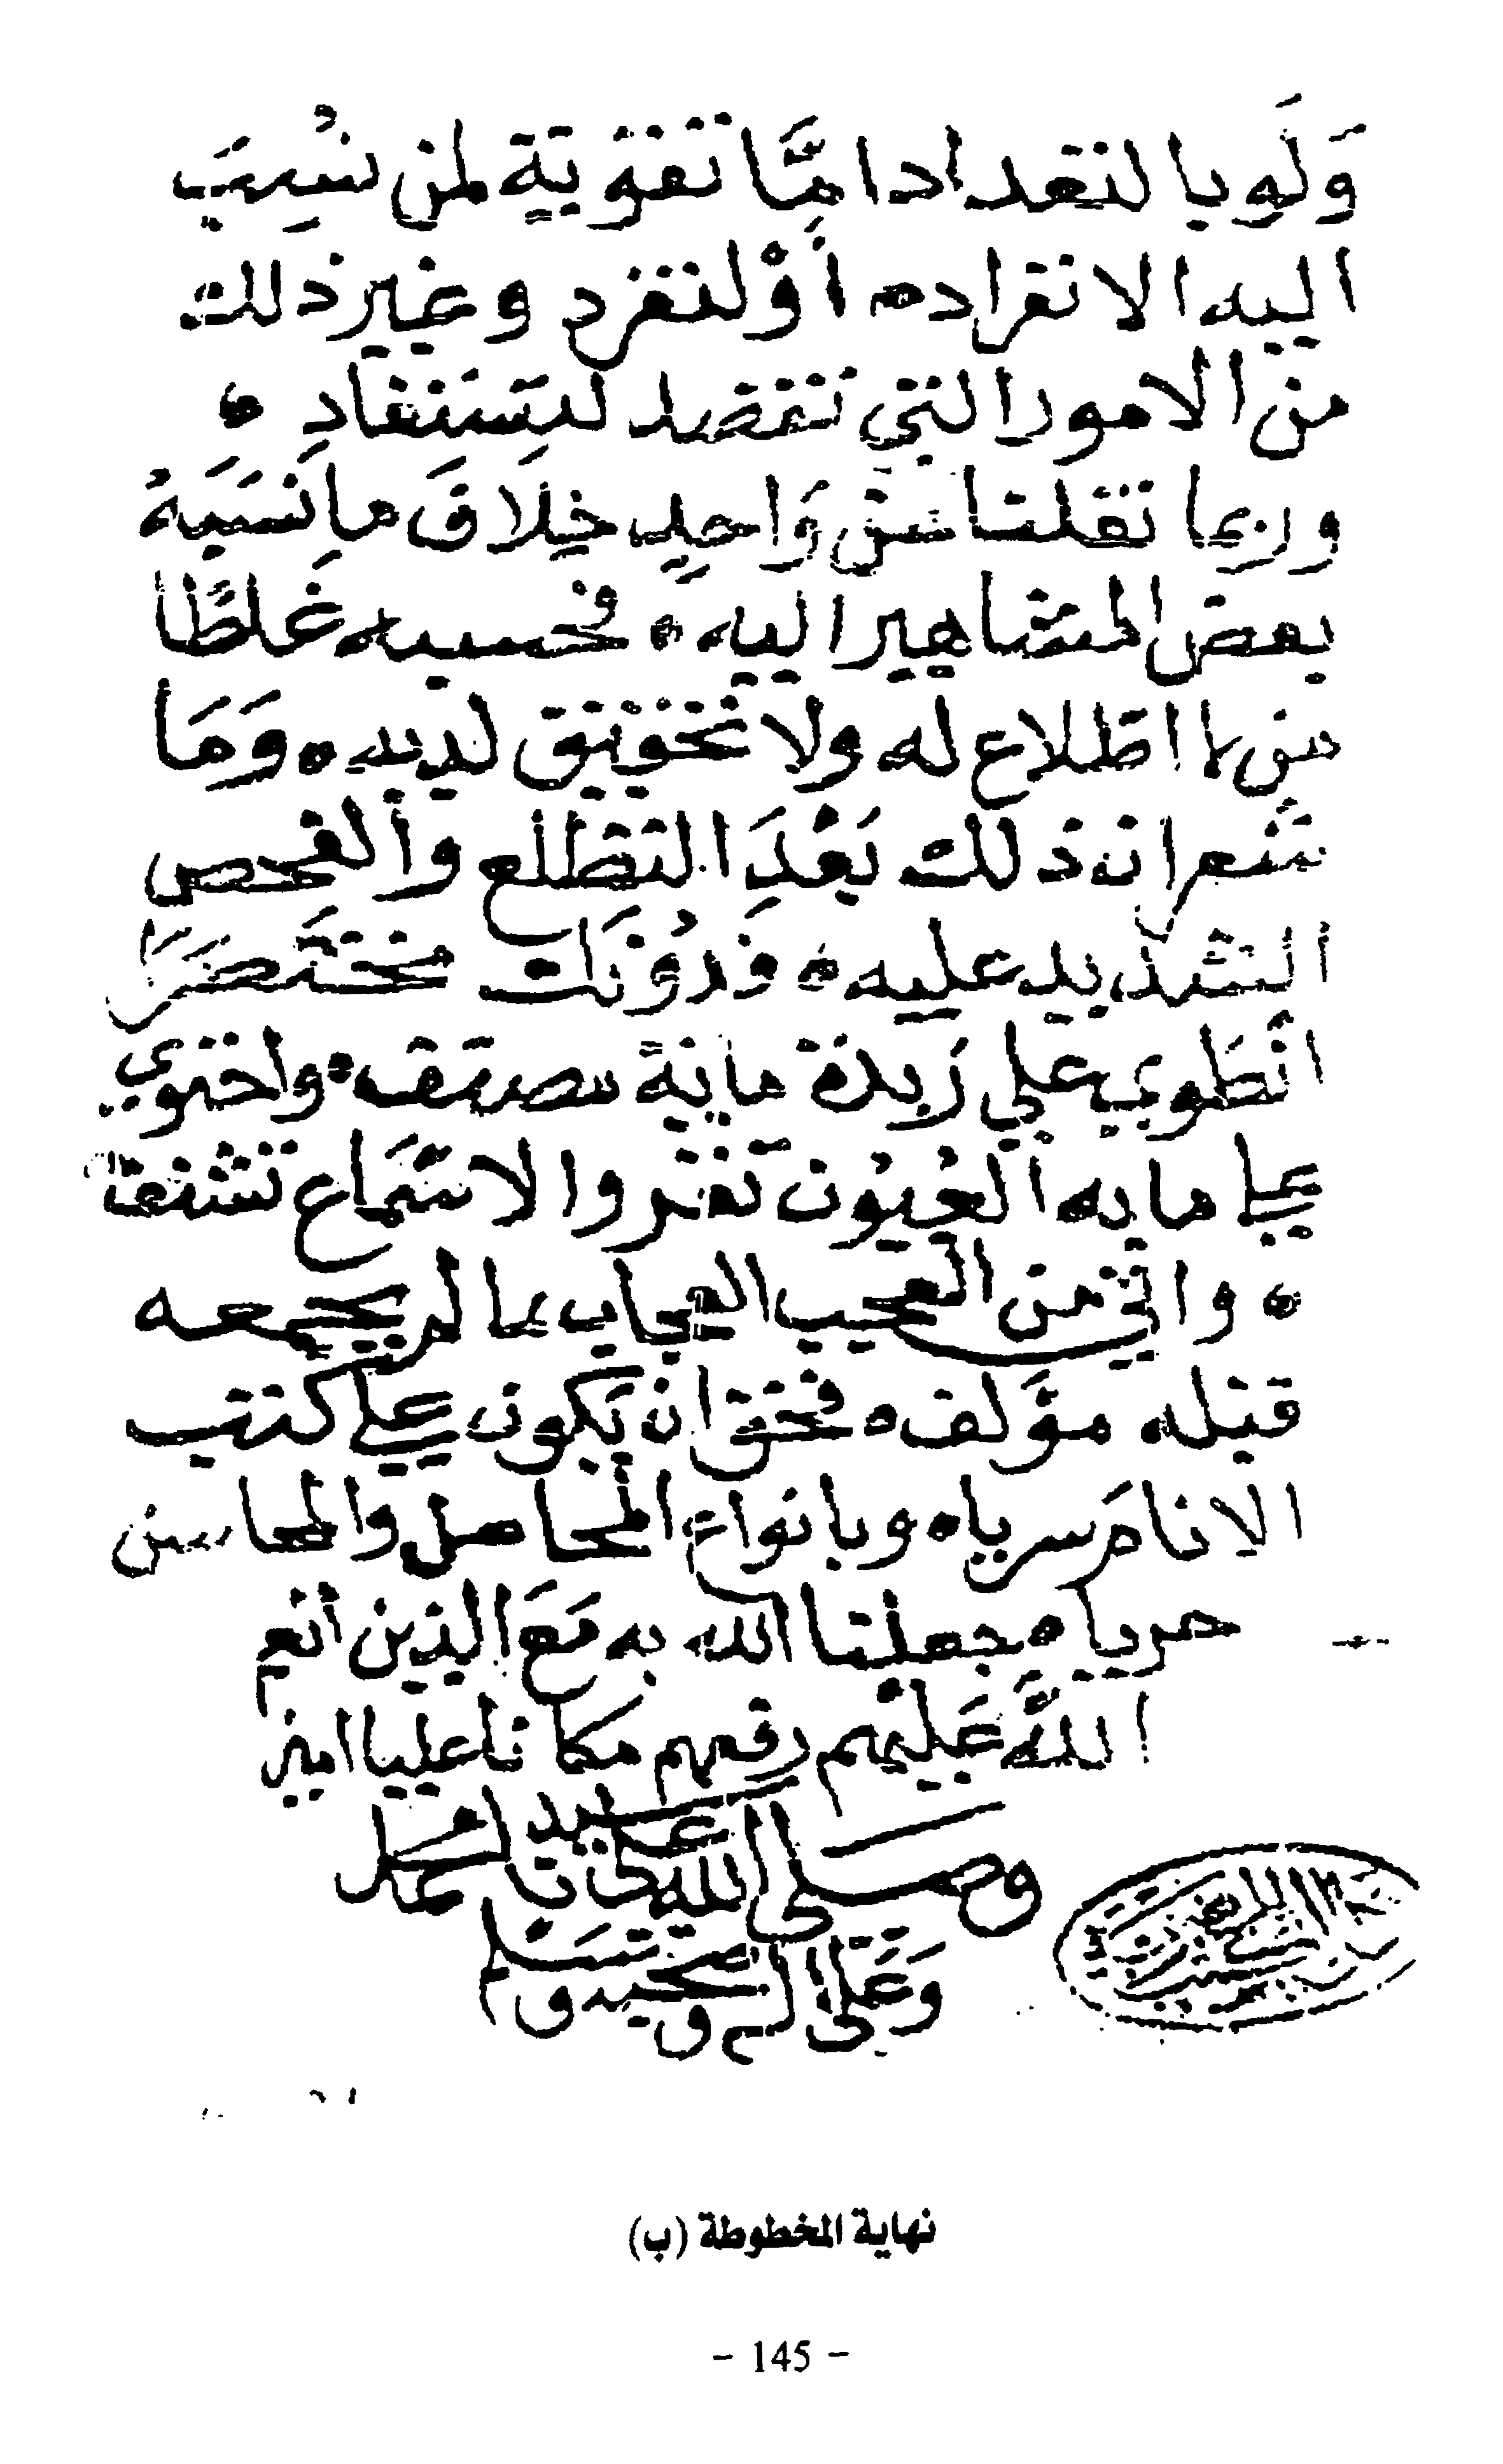 وَلَو بالتعداد امَّا تقوية لمن نُسِبَ
اليه الانفراده أَوْ لتفرد وغير ذلك
من الامور التي تقصد لتستفادِ ه
وربما نقلنا عن وَاحِدٍ خِلَافَ ما نَسَبَهُ
بعض المشاهير اليه ه فحسبه غلطًا
من لا اطلاع له ولا تحقيق لديه ه وَمَا
شعر ان ذلك بَعْدَ التطلع والفحص
الشديد عليه ه فدُونَك مختصَرًا
انطَوي علي زَبدة ماية مصنف ه واحتوي
علي ما به العُيُون تقر والاسْمَاع تشنف
ه واتي من العجيب العجاب بما لم يجمعه
قبله مؤَلف ه فحق ان يكون علي كتب
الانام سريا ه وبانواع المحاصل والمحاسن
حريا ه جعلنا الله به مَعَ الذين أنعم
اللَّه عَليْهم رفعهم مكانا عليا امين
وصلى الله على سيدنا محمد
وَعَلى اله وصحبه وسلم
نهاية المخطوطة (ب)
- 145 -